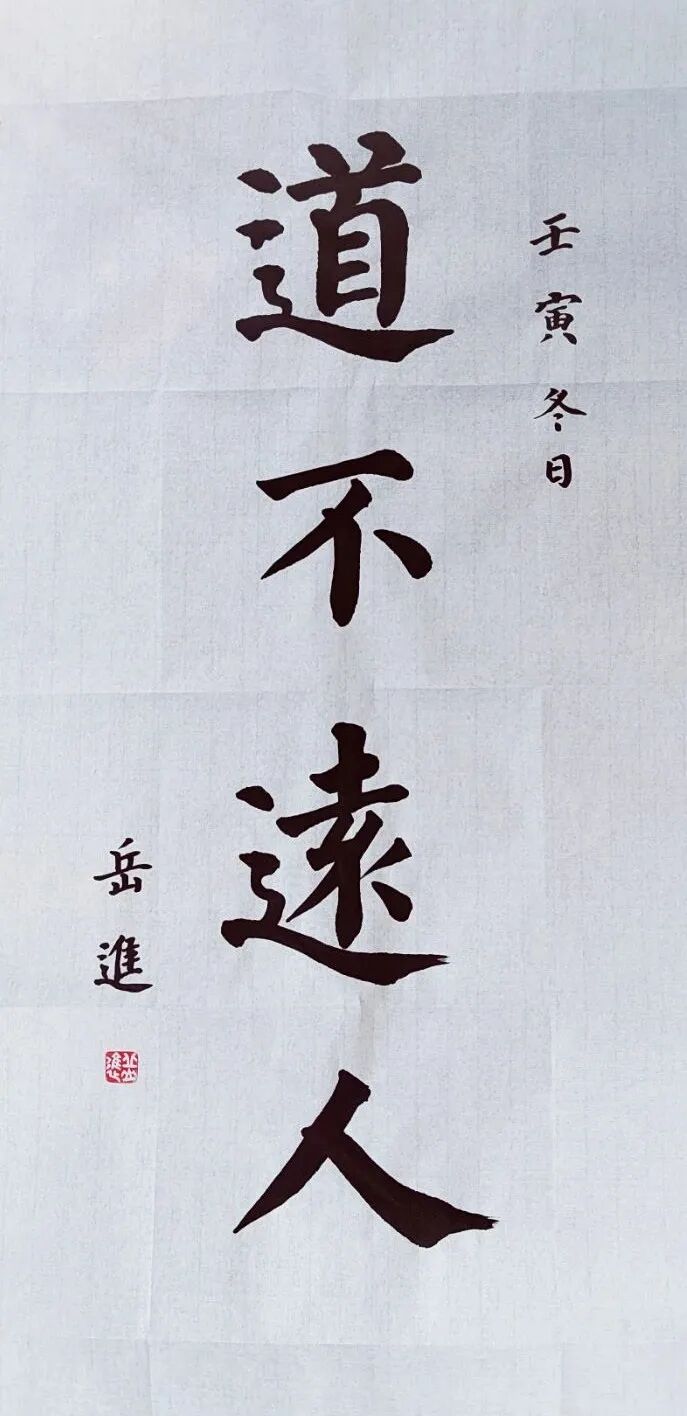 壬寅冬日
道不遠人
岳進
岳進